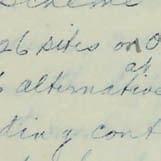 Scheme
26 sites on O
at
6 alternative
ting cont